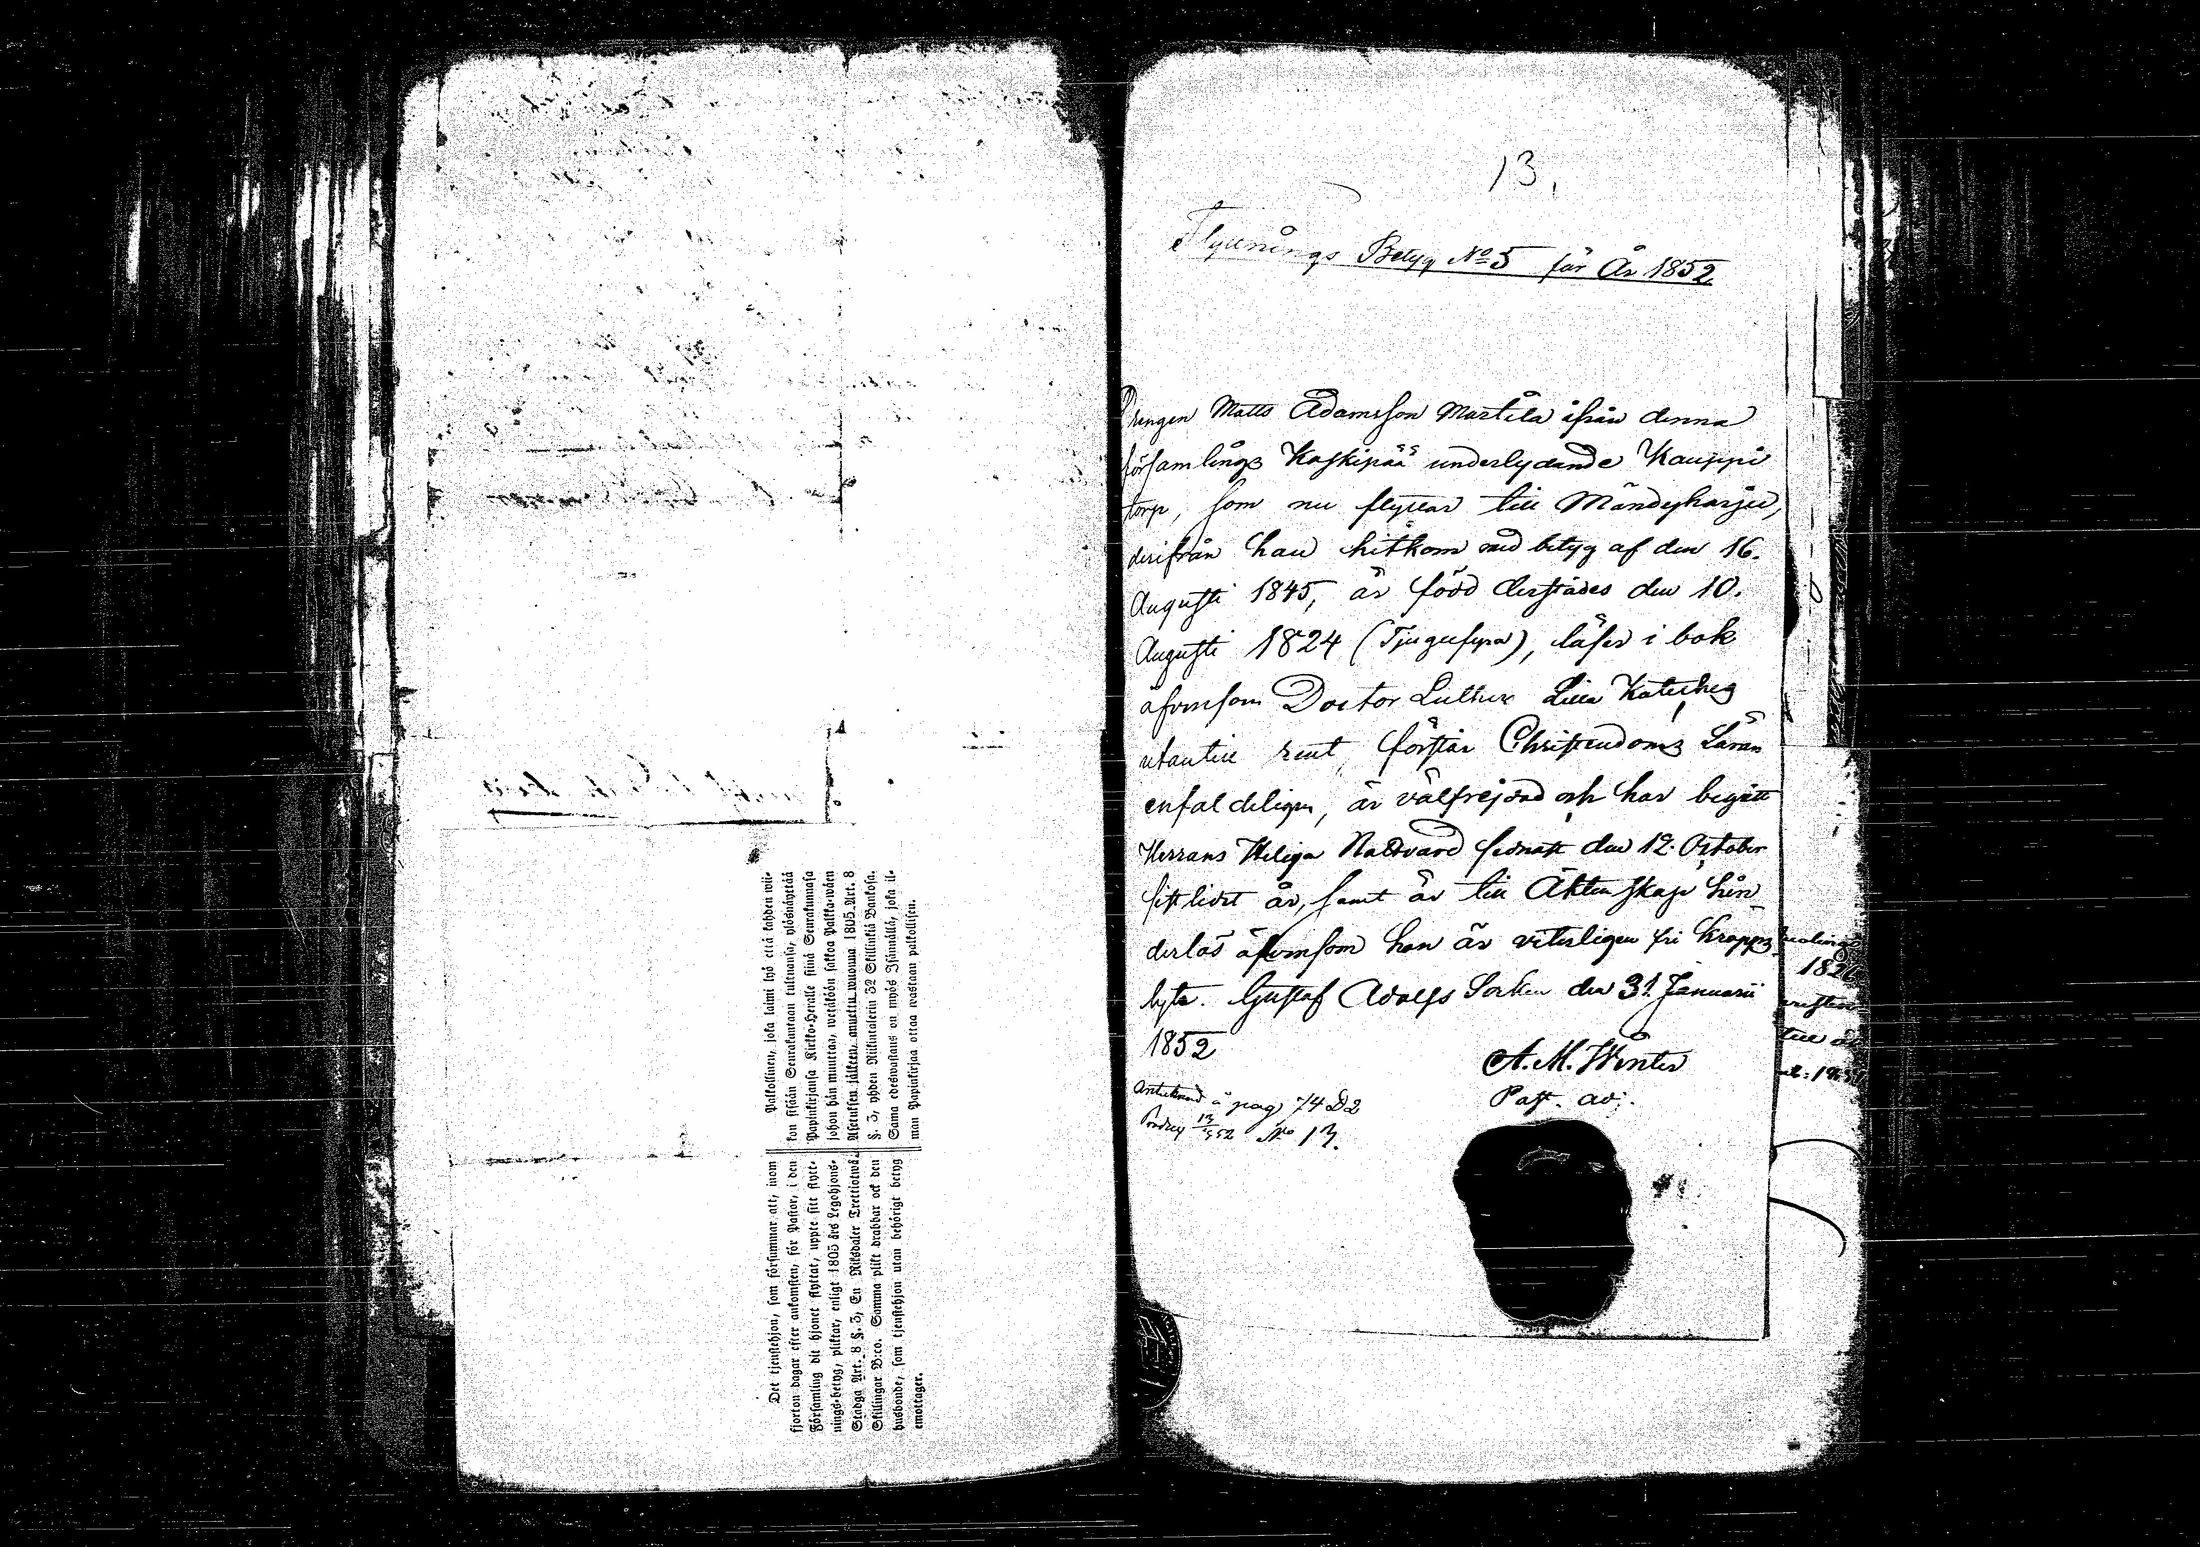 Palkollinen, joka laimi lyö että kahden wii-
kon sisään Seurakuntaan tultuansa, ylösnäyttää
Papinkirjansa Kirkko-Herralle siinä Seurakunnasa
johon hän muuttaa, wetäköön sakkoa Palkka-wäen
Asetuksen jälkeen, annettu wuonna 1805. Art. 8
§. 3, yhden Riikintalerin 32 Skillinkiä Bankosa.
Sama edeswastaus on myös Isännällä, joka il-
man Papinkirjaa ottaa wastaan palkollisen.
Det tjenstehjon, som försummar att, inom
fjorton dagar efter ankomsten, för Pastor, i den
Församling dit hjonet flyttat, uppte sitt flytt-
nings-betyg, pliktar, enligt 1805 års Legohjons-
Stadga Art. 8 §. 3, En Riksdaler Trettiotwå
Skillingar B:co. Samma plikt drabbar ock den
husbonde, som tjenstehjon utan behörigt betyg
emottager.
13.
Flyttnings Betyg No 5 för År 1852
Drengen Matts Adamsson Marttila ifrån denna
församlings Koskipää underlydande Kauppi
torp, som nu flyttar till Mändyharju,
derifrån han hitkom med betyg af den 16.
Augusti 1845, är född derstädes den 10.
Augusti 1824 (Tjugufyra), läser i bok
äfvensom Doctor Luthers Lilla Kateches
utantill rent, förstår Christendoms Läran
enfaldeligen, är välfrejdad och har begått
Herrans Heliga Nattvard sednast den 12. October
sistlidet år, samt är till Äktenskap hin-
derlös äfvensom han är viterligen fri Kropps-
lyte. Gustaf Adolfs Socken den 31. Januarii
1852
A. M. Winter
Past. adj.
Antecknad å pag 74 D2
No 13.